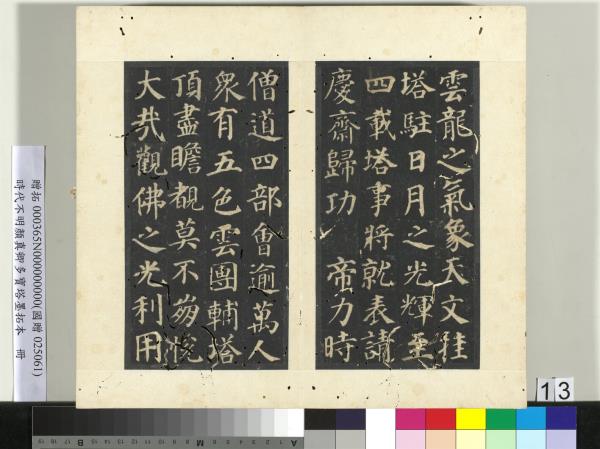 雲龍之氣象天文挂
塔駐日月之光輝至
四載塔事將就表請
慶齋歸功 帝力時
僧道四部會逾萬人
衆有五色雲團輔塔
頂盡瞻覩莫不崩悅
大哉觀佛之光利用
贈拓 000365N000000000(國贈 025061)
時代不明顏真卿多寶塔墨拓本 冊
13
A
M
B